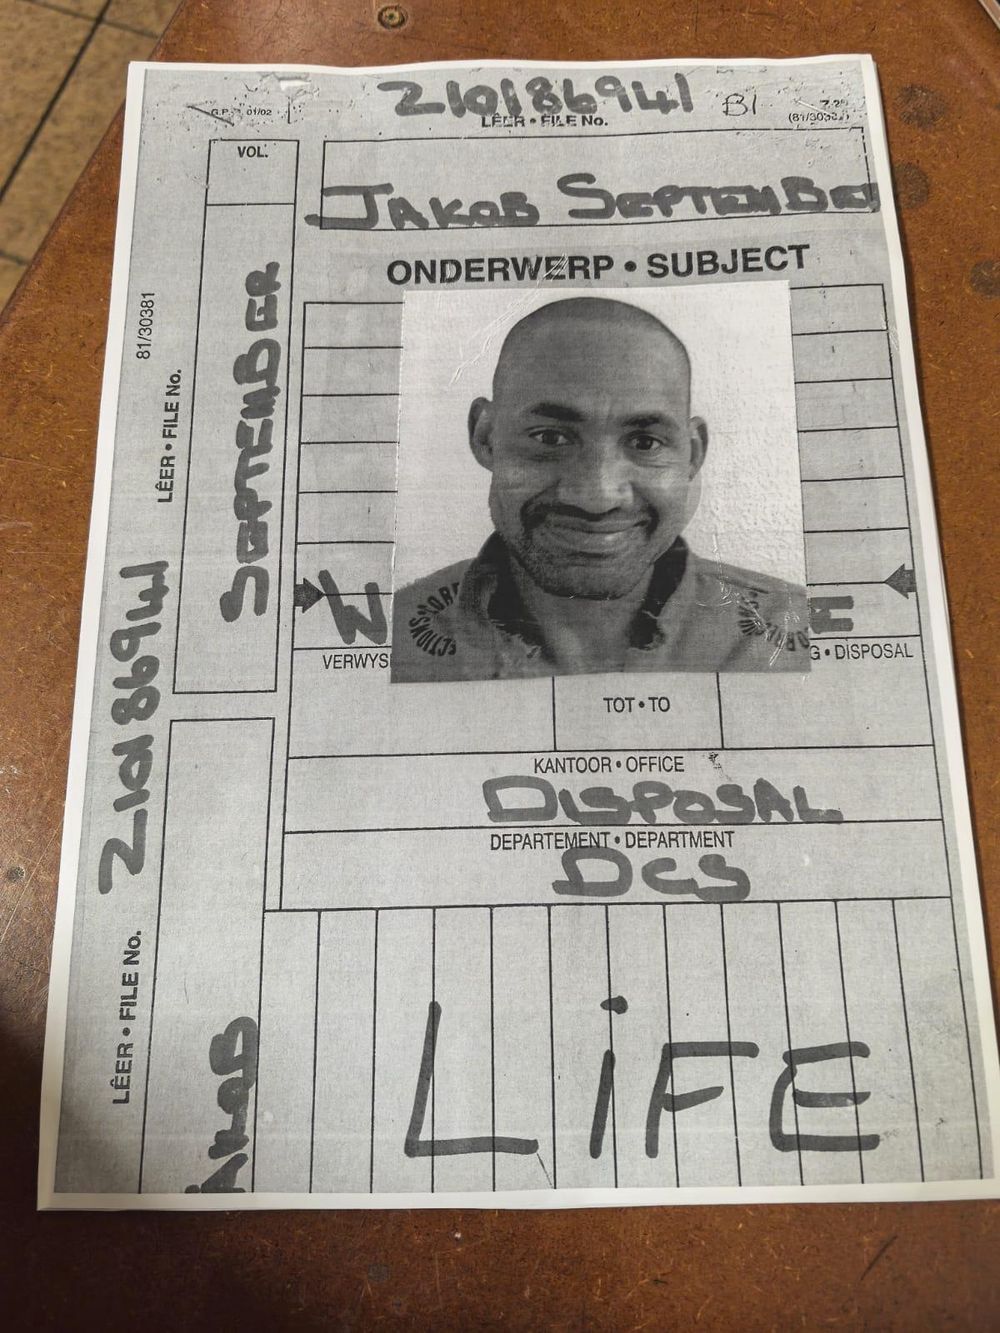 210186941 B1
G.P. 01/02
LÊER • FILE No.
VOL.
JAKOB SEPTEMBER
ONDERWERP • SUBJECT
81/30381
LÊER • FILE No.
SEPTEMBER
210186941
G • DISPOSAL
TOT • TO
KANTOOR • OFFICE
DISPOSAL
DEPARTEMENT • DEPARTMENT
DCS
LÊER • FILE No.
LiFE